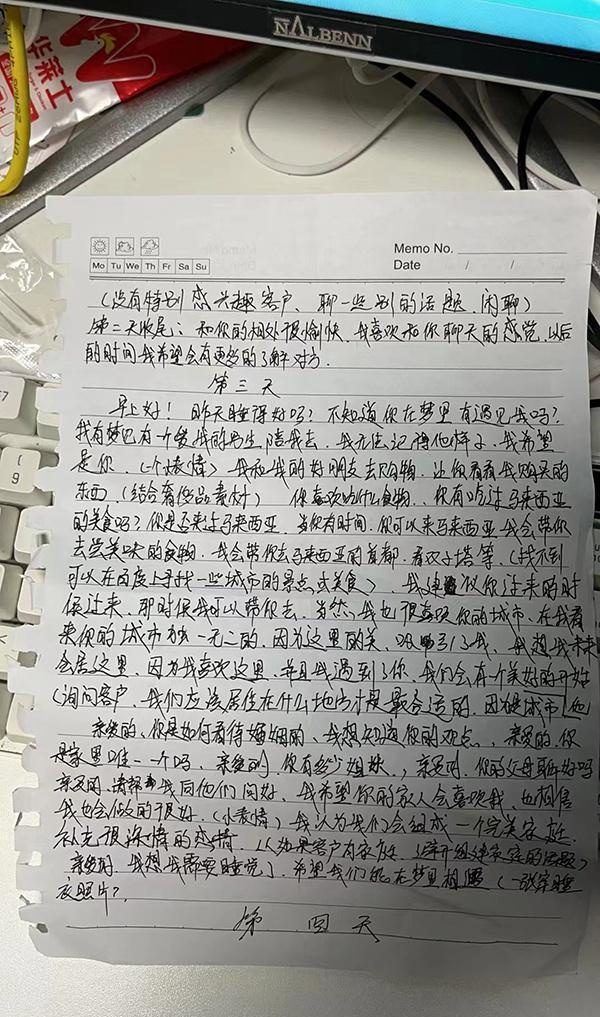 NALBENN
华莱士
Memo No.
Mo Tu We Th Fr Sa Su
Date / /
(没有特别感兴趣客户、聊一些别的话题、闲聊)
第二天收尾:和你的相处很愉快、我喜欢和你聊天的感觉、以后
的时间我希望会有更多的了解对方.
第三天
早上好!昨天睡得好吗?不知道你在梦里有遇见我吗?
我有梦见有一个爱我的男生陪我去、我无法记得他样子、我希望
是你、(一个表情)我和我的好朋友去购物、让你看看我购买的
东西、(结合奢侈品素材) 你喜欢吃什么食物、你有吃过马来西亚
的美食吗?你是否来过马来西亚、当你有时间、你可以来马来西亚我会带你
去尝美味的食物、我会带你去马来西亚的首都、看双子塔等(找不到
可以在百度上寻找一些城市的景点或美食)、我建议你过来的时
候过来、那时候我可以带你去、当然、我也很喜欢你的城市、在我看
来你的城市独一无二的、因为这里的美、吸引了我、我想我未来
会居这里、因为我喜欢这里、并且我遇到了你、我们会有一个美好的开始
(询问客户、我们应该居住在什么地方才是最合适的、因为是城市
亲爱的、你是如何看待婚姻的、我想知道你的观点、、亲爱的、你
是家里唯一一个吗、亲爱的、你有多少姐妹、、亲爱的、你的父母都好吗
亲爱的、请帮我同他们问好、我希望你的家人会喜欢我、也相信
我也会做的很好、(小表情)我认为我们会组成一个完美家庭
补充很深情的感情、(如果客户有家庭、避开组建家庭的话题)
亲爱的、我想我需要睡觉了、希望我们能在梦里相遇(一张穿睡
衣照片?
第四天